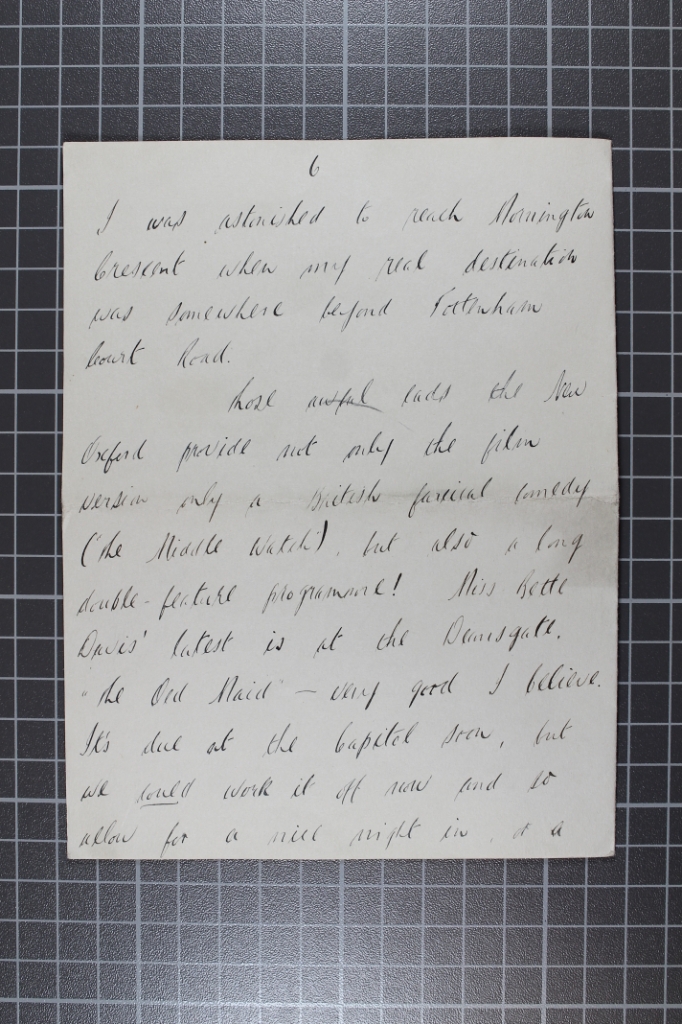 6
I was astonished to reach Mornington
Crescent when my real destination
was somewhere beyond Tottenham
Court Road.
Those awful cads the New
Oxford provide not only the film
version only a British farcical comedy
('The Middle Watch'), but also a long
double-feature programme! Miss Bette
Davis' latest is at the Deansgate.
"The Old Maid" – very good I believe.
It's due at the Capitol soon, but
we could work it off now and so
allow for a nice night in, or a